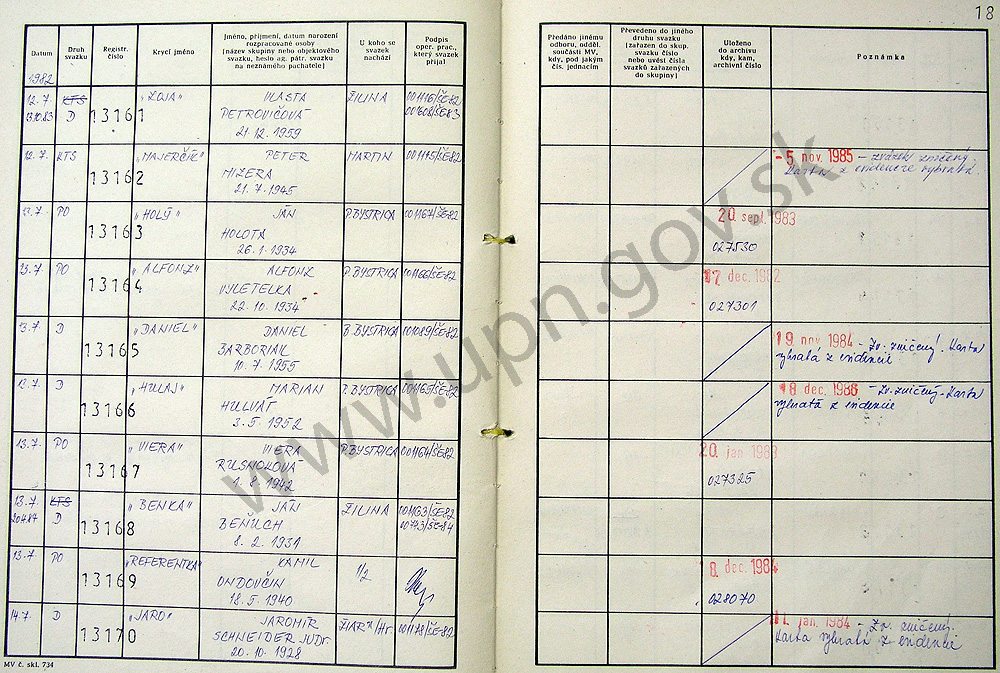 18
Datum
Druh svazku
Registr. číslo
Krycí jméno
Jméno, příjmení, datum narození rozpracované osoby (název skupiny nebo objektového svazku, heslo ag. pátr. svazku na neznámého pachatele)
U koho se svazek nachází
Podpis oper. prac., který svazek přijal
Předáno jinému odboru, odděl. součásti MV, kdy, pod jakým čís. jednacím
Převedeno do jiného druhu svazku (zařazen do skup. svazku číslo nebo uvést čísla svazků zařazených do skupiny)
Uloženo do archivu kdy, kam, archivní číslo
Poznámka
1982
12. 7. KTS 13161 „ZOJA" VLASTA ŽILINA 001116/ŠE-82
13.10.83 D PETROVIČOVÁ 001608/ŠE-83
21. 12. 1959
12. 7. KTS 13162 „MAJERČÍK" PETER MARTIN 001115/ŠE-82 - 5 nov. 1985 - zväzok zničený.
MIZERA Karta z evidencie vybratá.
21. 7. 1945
13. 7. PO 13163 „HOLÝ" JÁN P. BYSTRICA 001167/ŠE-82 20 sept. 1983
HOLOTA 027530
26. 1. 1934
13. 7. PO 13164 „ALFONZ" ALFONZ P. BYSTRICA 001166/ŠE-82 17 dec. 1982
VYLETELKA 027301
22. 10. 1934
13. 7. D 13165 „DANIEL" DANIEL B. BYSTRICA 001089/ŠE-82 19 nov 1984 - Zv. zničený. Karta
BARBORIAK vybratá z evidencie
10. 7. 1955
13. 7. D 13166 „HULAJ" MARIAN P. BYSTRICA 001165/ŠE-82 18 dec. 1986 - Zv. zničený. Karta
HULVÁT vybratá z evidencie
3. 5. 1952
13. 7. PO 13167 „VIERA" VIERA P. BYSTRICA 001164/ŠE-82 20 jan. 1983
RUSNOKOVÁ 027325
1. 8. 1942
13. 7. KTS 13168 „BENKA" JÁN ŽILINA 001163/ŠE-82
D BENUCH
8. 2. 1931
13. 7. PO 13169 „REFERENTKA" KAMIL 1/2 dec. 1984
ONDOVČIN 028070
18. 5. 1940
14. 7. D 13170 „JARO" JAROMÍR ŽIAR n/Hr. 001178/ŠE-82 11. jan. 1984 - Zv. zničený.
SCHNEIDER JUDr. Karta vybratá z evidencie
20. 10. 1928
MV č. skl. 734
www.upn.gov.sk